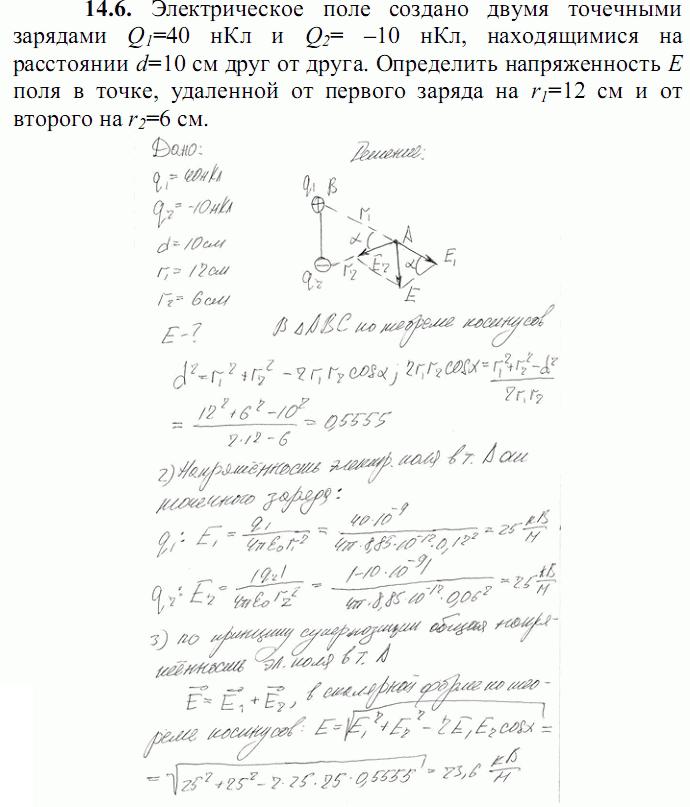 14.6. Электрическое поле создано двумя точечными
зарядами Q1=40 нКл и Q2= –10 нКл, находящимися на
расстоянии d=10 см друг от друга. Определить напряженность E
поля в точке, удаленной от первого заряда на r1=12 см и от
второго на r2=6 см.
Дано:
q1 = 40нКл
q2 = -10нКл
d = 10см
r1 = 12см
r2 = 6см
E - ?
Решение:
q1 B
r1
α A
r2 E2 α E1
q2 E
В ΔABC по теореме косинусов
d² = r1² + r2² - 2r1r2 cosα; 2r1r2cosα = (r1² + r2² - d²)/(2r1r2)
= (12² + 6² - 10²)/(2·12-6) = 0,5555
2) Напряжённость электр. поля в т. А от
точечного заряда:
q1: E1 = q1/(4πε0r1²) = 40·10⁻⁹/(4π·8,85·10⁻¹²·0,12²) = 25 кВ/м
q2: E2 = |q2|/(4πε0r2²) = |-10·10⁻⁹|/(4π·8,85·10⁻¹²·0,06²) = 25 кВ/м
3) по принципу суперпозиции общая напря-
жённость эл. поля в т. А
E⃗ = E⃗1 + E⃗2, в скалярной форме по тео-
реме косинусов: E = √(E1² + E2² - 2E1E2cosα) =
= √(25² + 25² - 2·25·25·0,5555) = 23,6 кВ/м